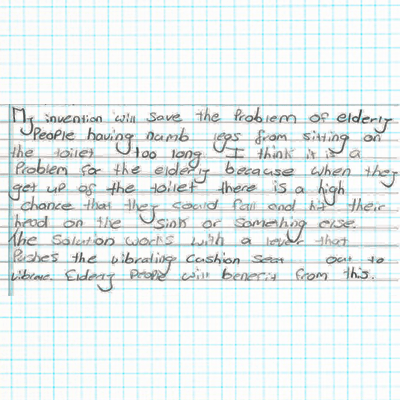 My invention will save the Problem of elderly
People having numb legs from sitting on
the toilet too long. I think it is a
Problem for the elderly because when they
get up of the toilet there is a high
chance that they could fall and hit their
head on the sink or something else.
The Solution works with a lever that
Pushes the vibrating Cushion seat out to
vibrate. Elderly People will benefit from this.